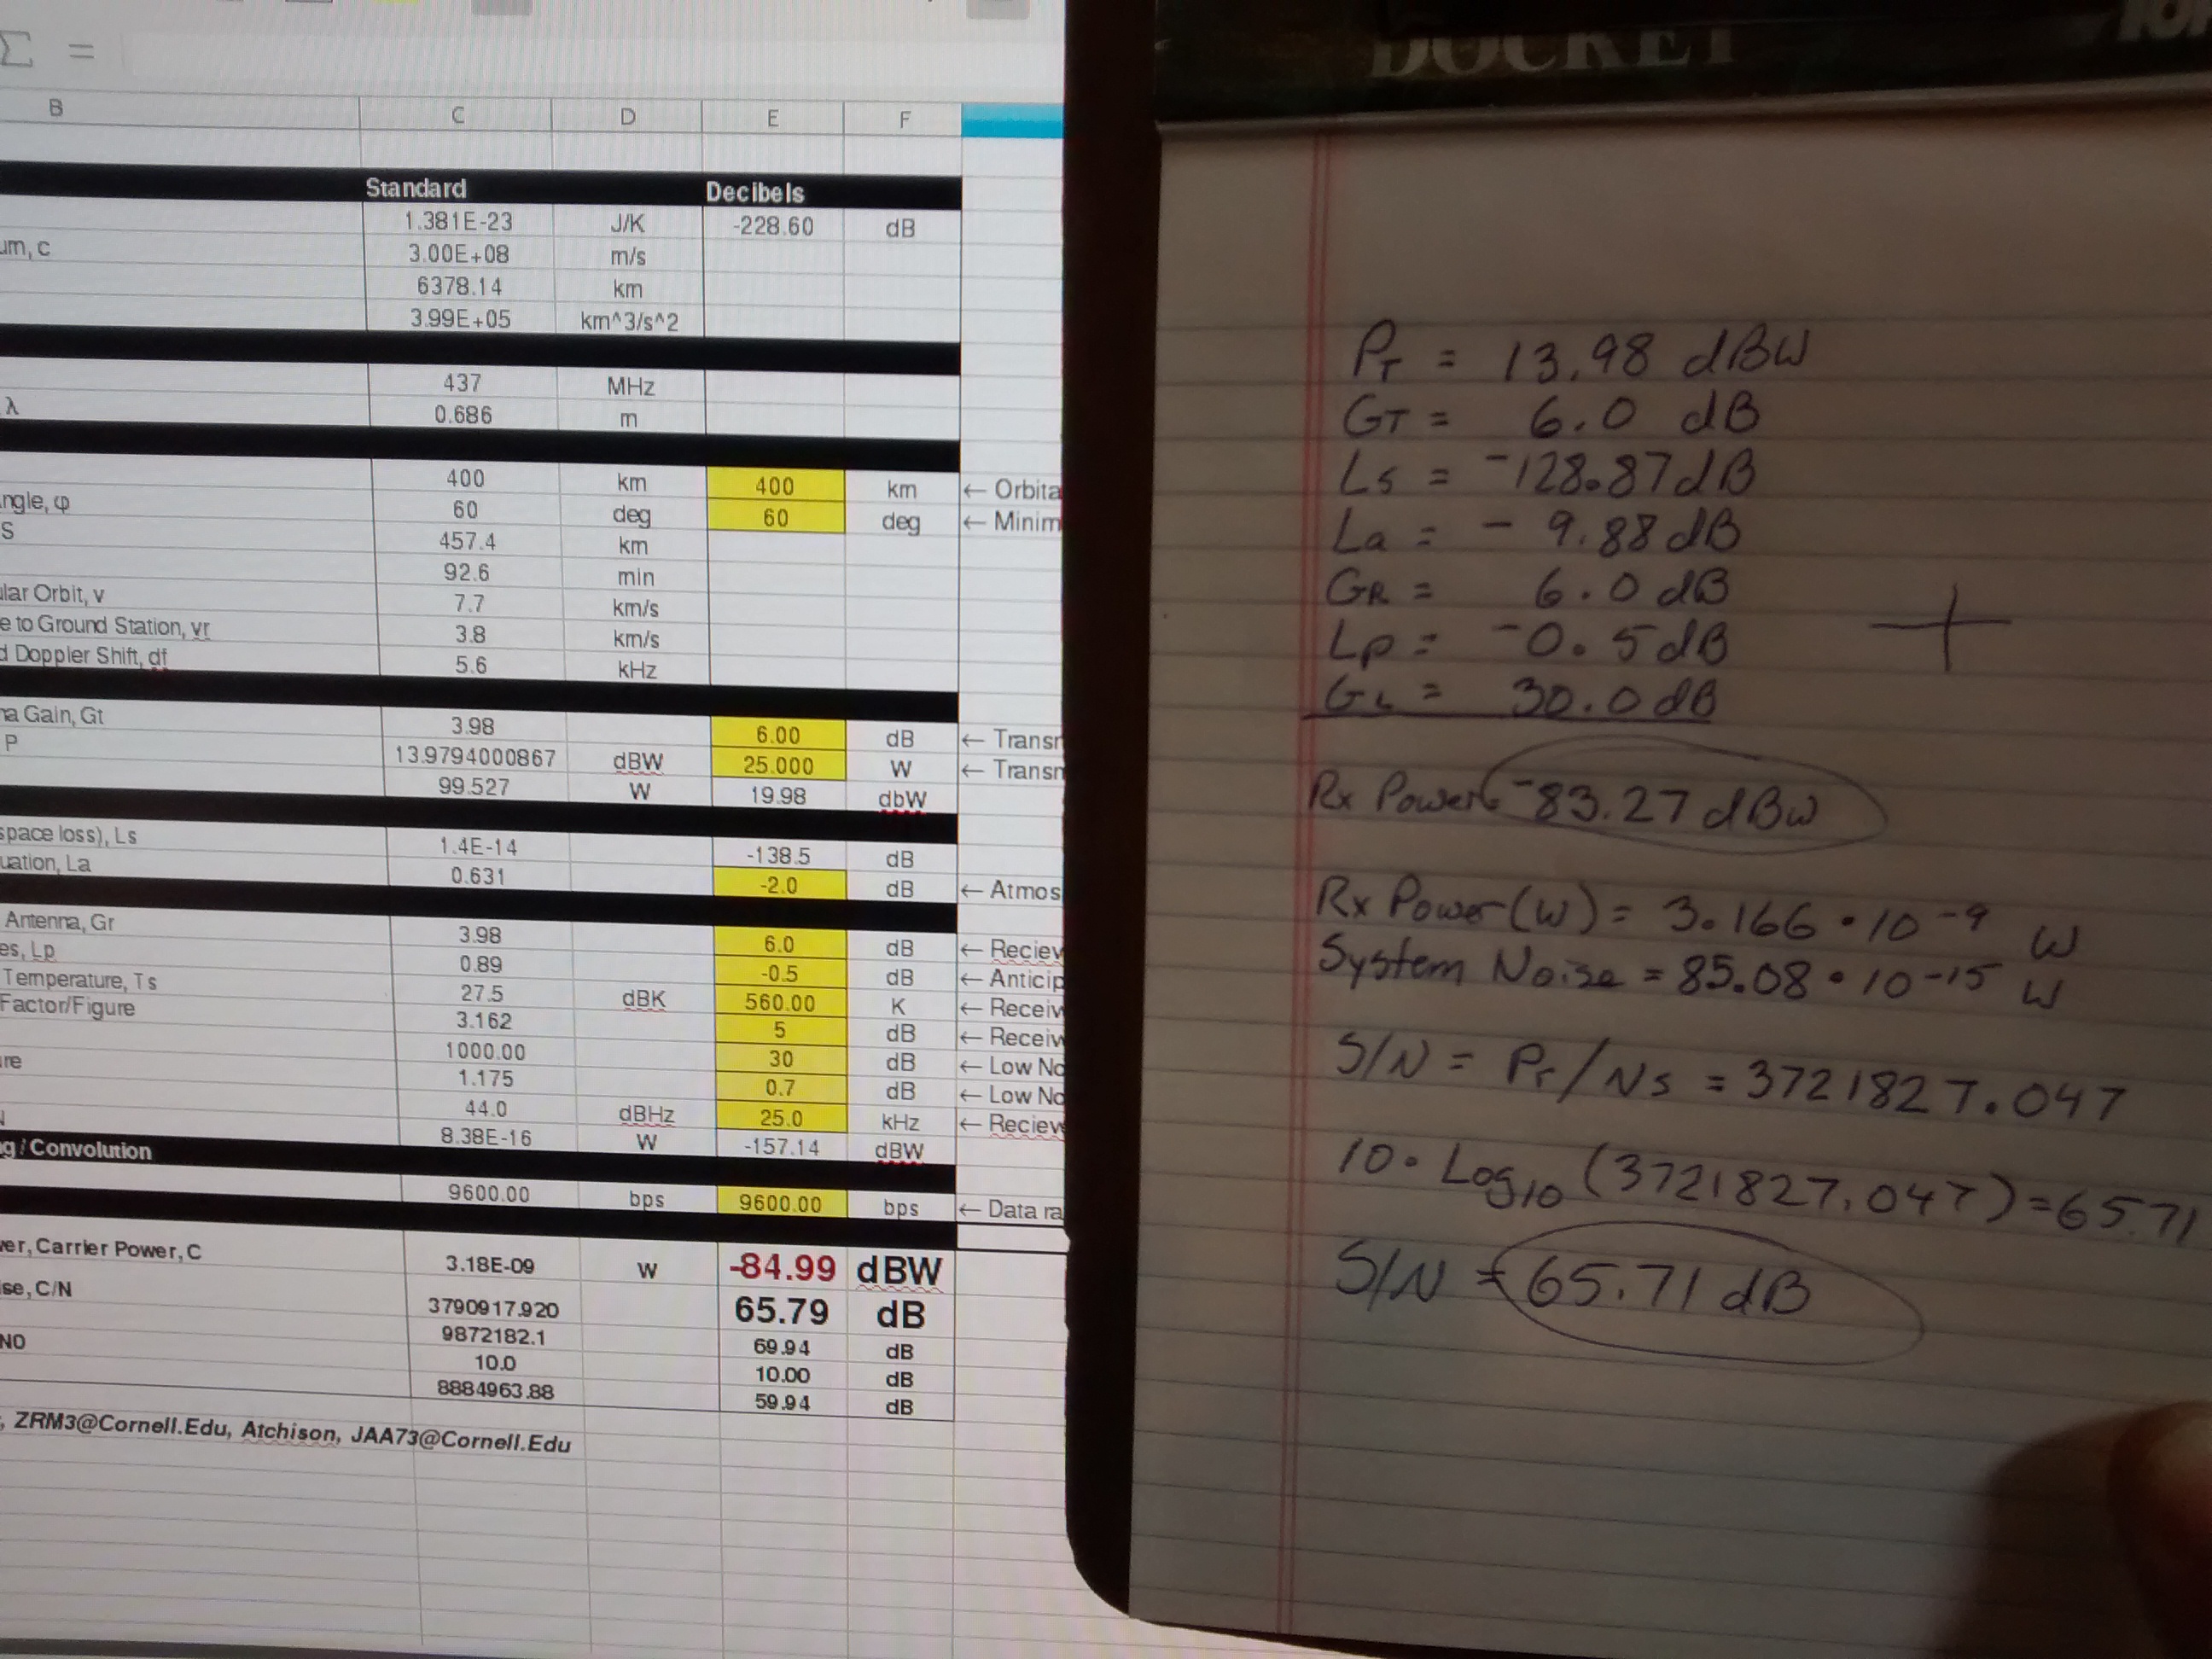 Σ =
B C D E F
Standard Decibels
1.381E-23 J/K -228.60 dB
um, c 3.00E+08 m/s
6378.14 km
3.99E+05 km^3/s^2
437 MHz
λ 0.686 m
400 km 400 km ← Orbita
ngle, φ 60 deg 60 deg ← Minim
S 457.4 km
92.6 min
ular Orbit, v 7.7 km/s
e to Ground Station, vr 3.8 km/s
d Doppler Shift, df 5.6 kHz
na Gain, Gt 3.98 6.00 dB ← Transm
P 13.9794000867 dBW 25.000 W ← Transm
99.527 W 19.98 dbW
space loss), Ls 1.4E-14 -138.5 dB
uation, La 0.631 -2.0 dB ← Atmos
Antenna, Gr 3.98 6.0 dB ← Reciev
es, Lp 0.89 -0.5 dB ← Anticip
Temperature, Ts 27.5 dBK 560.00 K ← Receiv
Factor/Figure 3.162 5 dB ← Receiv
1000.00 30 dB ← Low No
re 1.175 0.7 dB ← Low No
44.0 dBHz 25.0 kHz ← Reciev
N 8.38E-16 W -157.14 dBW
g / Convolution
9600.00 bps 9600.00 bps ← Data ra
ver, Carrier Power, C 3.18E-09 W -84.99 dBW
se, C/N 3790917.920 65.79 dB
NO 9872182.1 69.94 dB
10.0 10.00 dB
8884963.88 59.94 dB
, ZRM3@Cornell.Edu, Atchison, JAA73@Cornell.Edu
DOCKET
PT = 13.98 dBW
GT = 6.0 dB
Ls = -128.87dB
La = - 9.88dB
GR = 6.0 dB
Lp = -0.5dB
GL = 30.0dB
+
Rx Power -83.27 dBW
Rx Power(W) = 3.166 • 10-9 W
System Noise = 85.08 • 10-15 W
S/N = Pr/Ns = 3721827.047
10 • Log10 (3721827.047) = 65.71
S/N = 65.71 dB